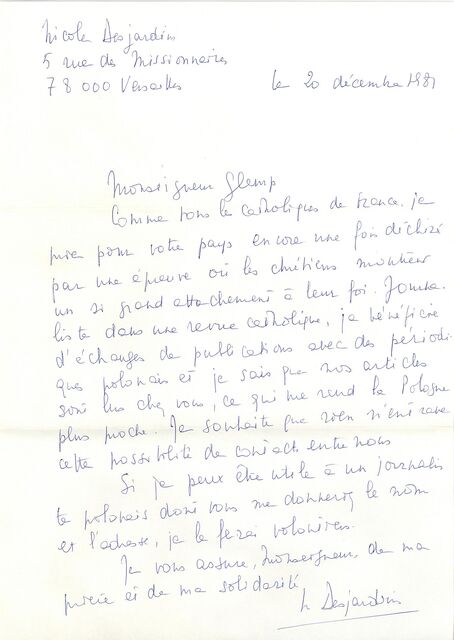 Nicole Desjardins
5 rue des Missionnaires
78 000 Versailles
le 20 décembre 1981
Monseigneur Glemp
Comme tous les catholiques de France, je
prie pour votre pays encore une fois déchiré
par une épreuve où les chrétiens montrent
un si grand attachement à leur foi. Journa-
liste dans une revue catholique, je bénéficie
d'échanges de publications avec des périodi-
ques polonais et je sais que nos articles
sont lus chez vous, ce qui me rend la Pologne
plus proche. Je souhaite que rien n'entrave
cette possibilité de contacts entre nous
Si je peux être utile à un journalis
te polonais dont vous me donnerez le nom
et l'adresse, je le ferai volontiers.
Je vous assure, Monseigneur, de ma
prière et de ma solidarité
N Desjardins